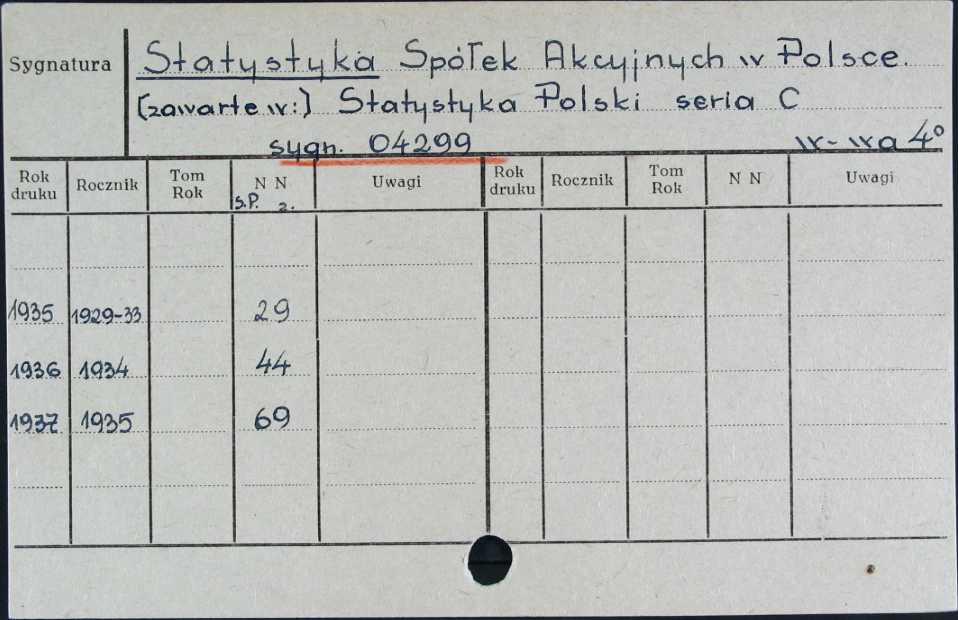 Sygnatura Statystyka Spółek Akcyjnych w Polsce.
[zawarte w:] Statystyka Polski seria C
sygn. 04299 W-wa 4°
Rok druku Rocznik Tom Rok N N Uwagi Rok druku Rocznik Tom Rok N N Uwagi
S.P. z.
1935 1929-33 29
1936 1934 44
1937 1935 69